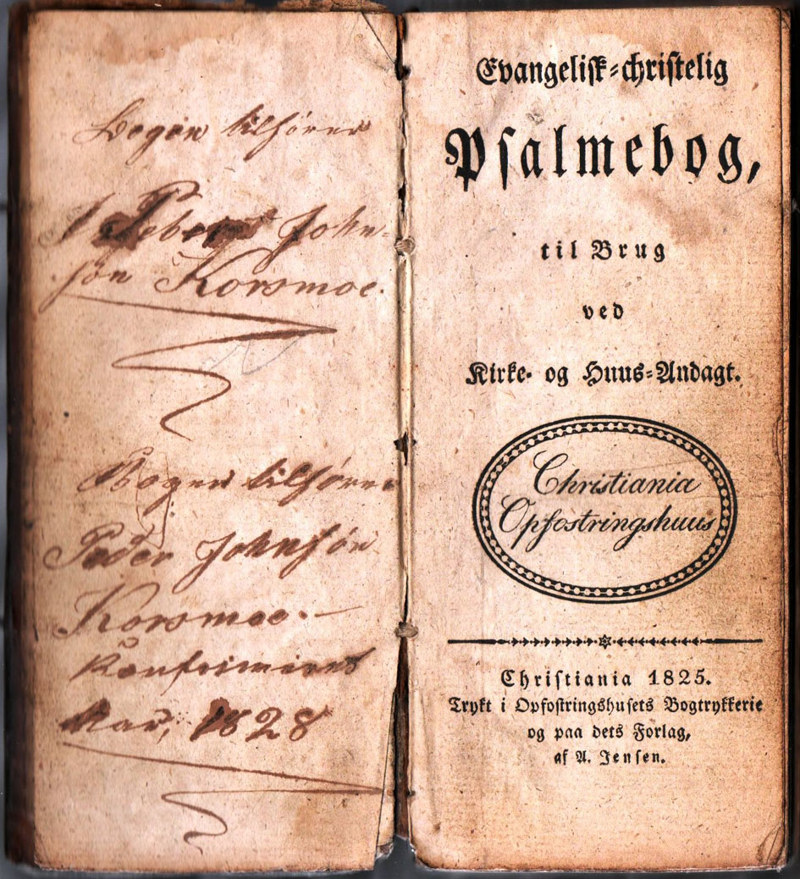 Bogen tilhører
Peder John-
søn Korsmoe.
Bogen tilhører
Peder Johnsøn
Korsmoe.
Konfirmeret
Aar, 1828
Evangelisk-christelig
Psalmebog,
til Brug
ved
Kirke- og Huus-Andagt.
Christiania
Opfostringshuus
Christiania 1825.
Trykt i Opfostringshusets Bogtrykkerie
og paa dets Forlag,
af A. Jensen.